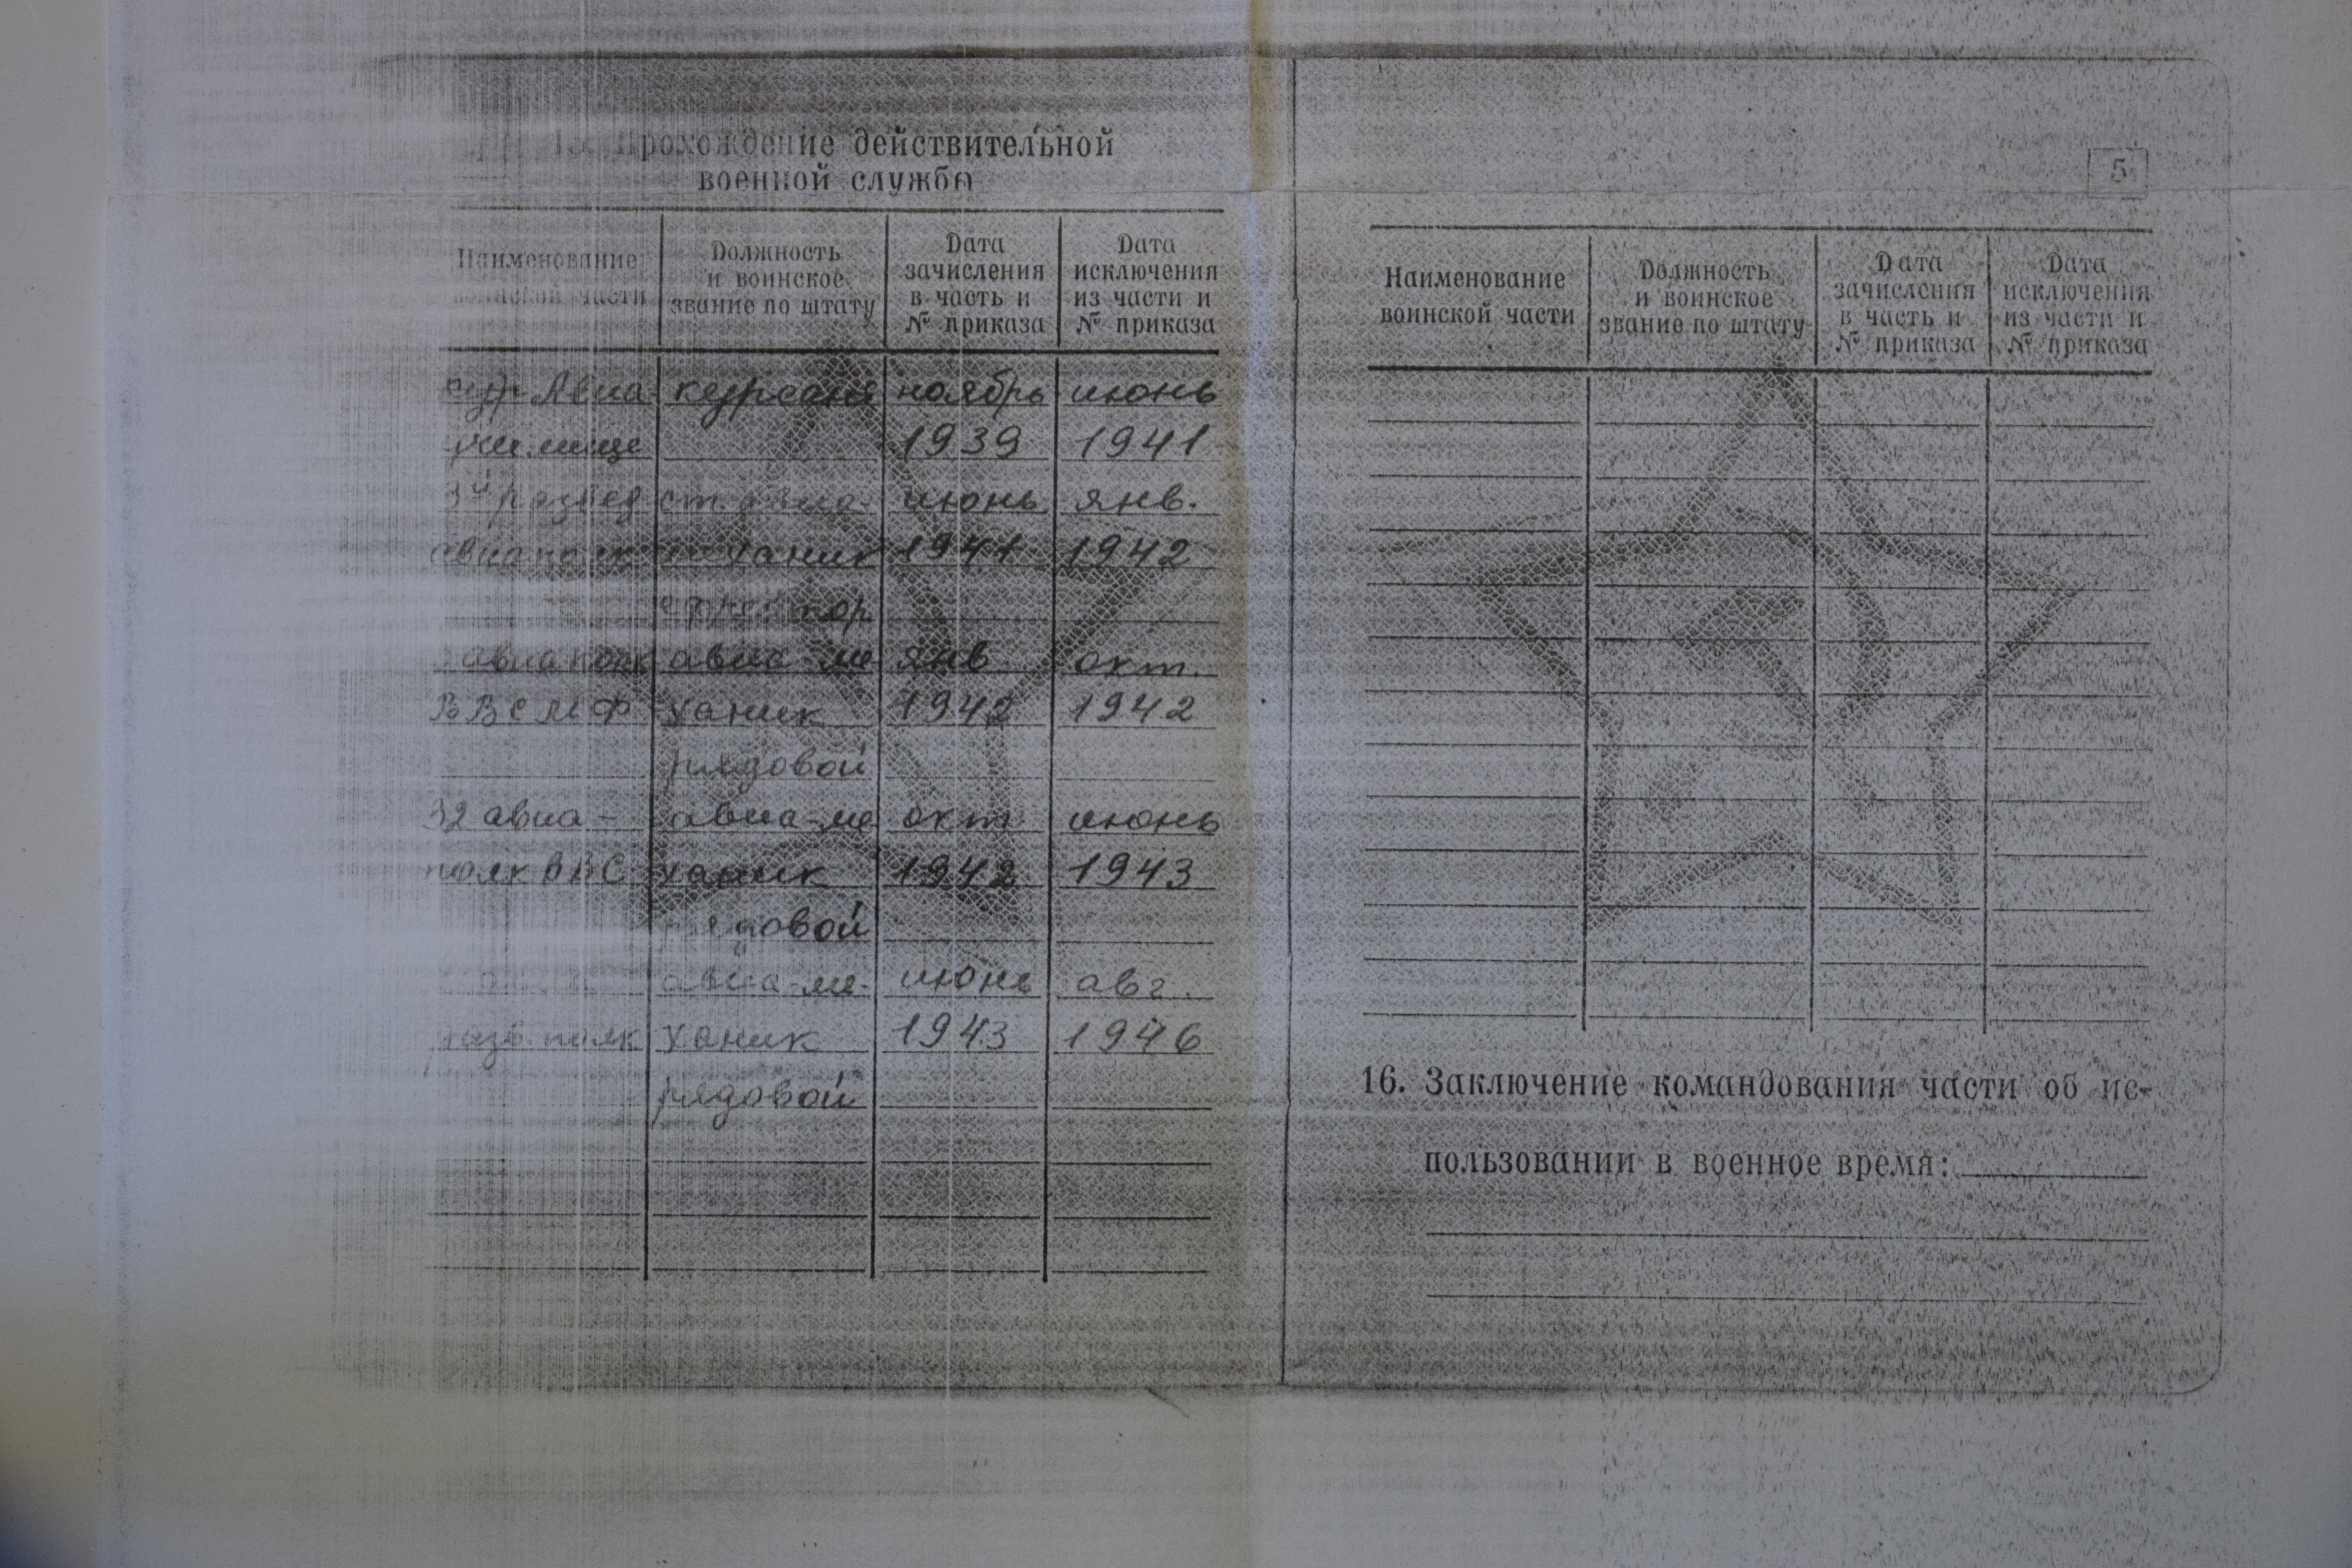 Прохождение действительной
военной службы
Наименование
воинской части
Должность
и воинское
звание по штату
Дата
зачисления
в часть и
№ приказа
Дата
исключения
из части и
№ приказа
Авиа курсант ноябрь июнь
училище 1939 1941
развед ст. июнь янв.
авиаполк ханик 1941 1942
авиаполк авиа-ме янв окт.
ВВС МФ ханик 1942 1942
рядовой
32 авиа- авиа-ме окт июнь
полк ВВС ханик 1942 1943
рядовой
авиа-ме- июнь авг.
полк ханик 1943 1946
рядовой
5
Наименование
воинской части
Должность
и воинское
звание по штату
Дата
зачисления
в часть и
№ приказа
Дата
исключения
из части и
№ приказа
16. Заключение командования части об ис-
пользовании в военное время: